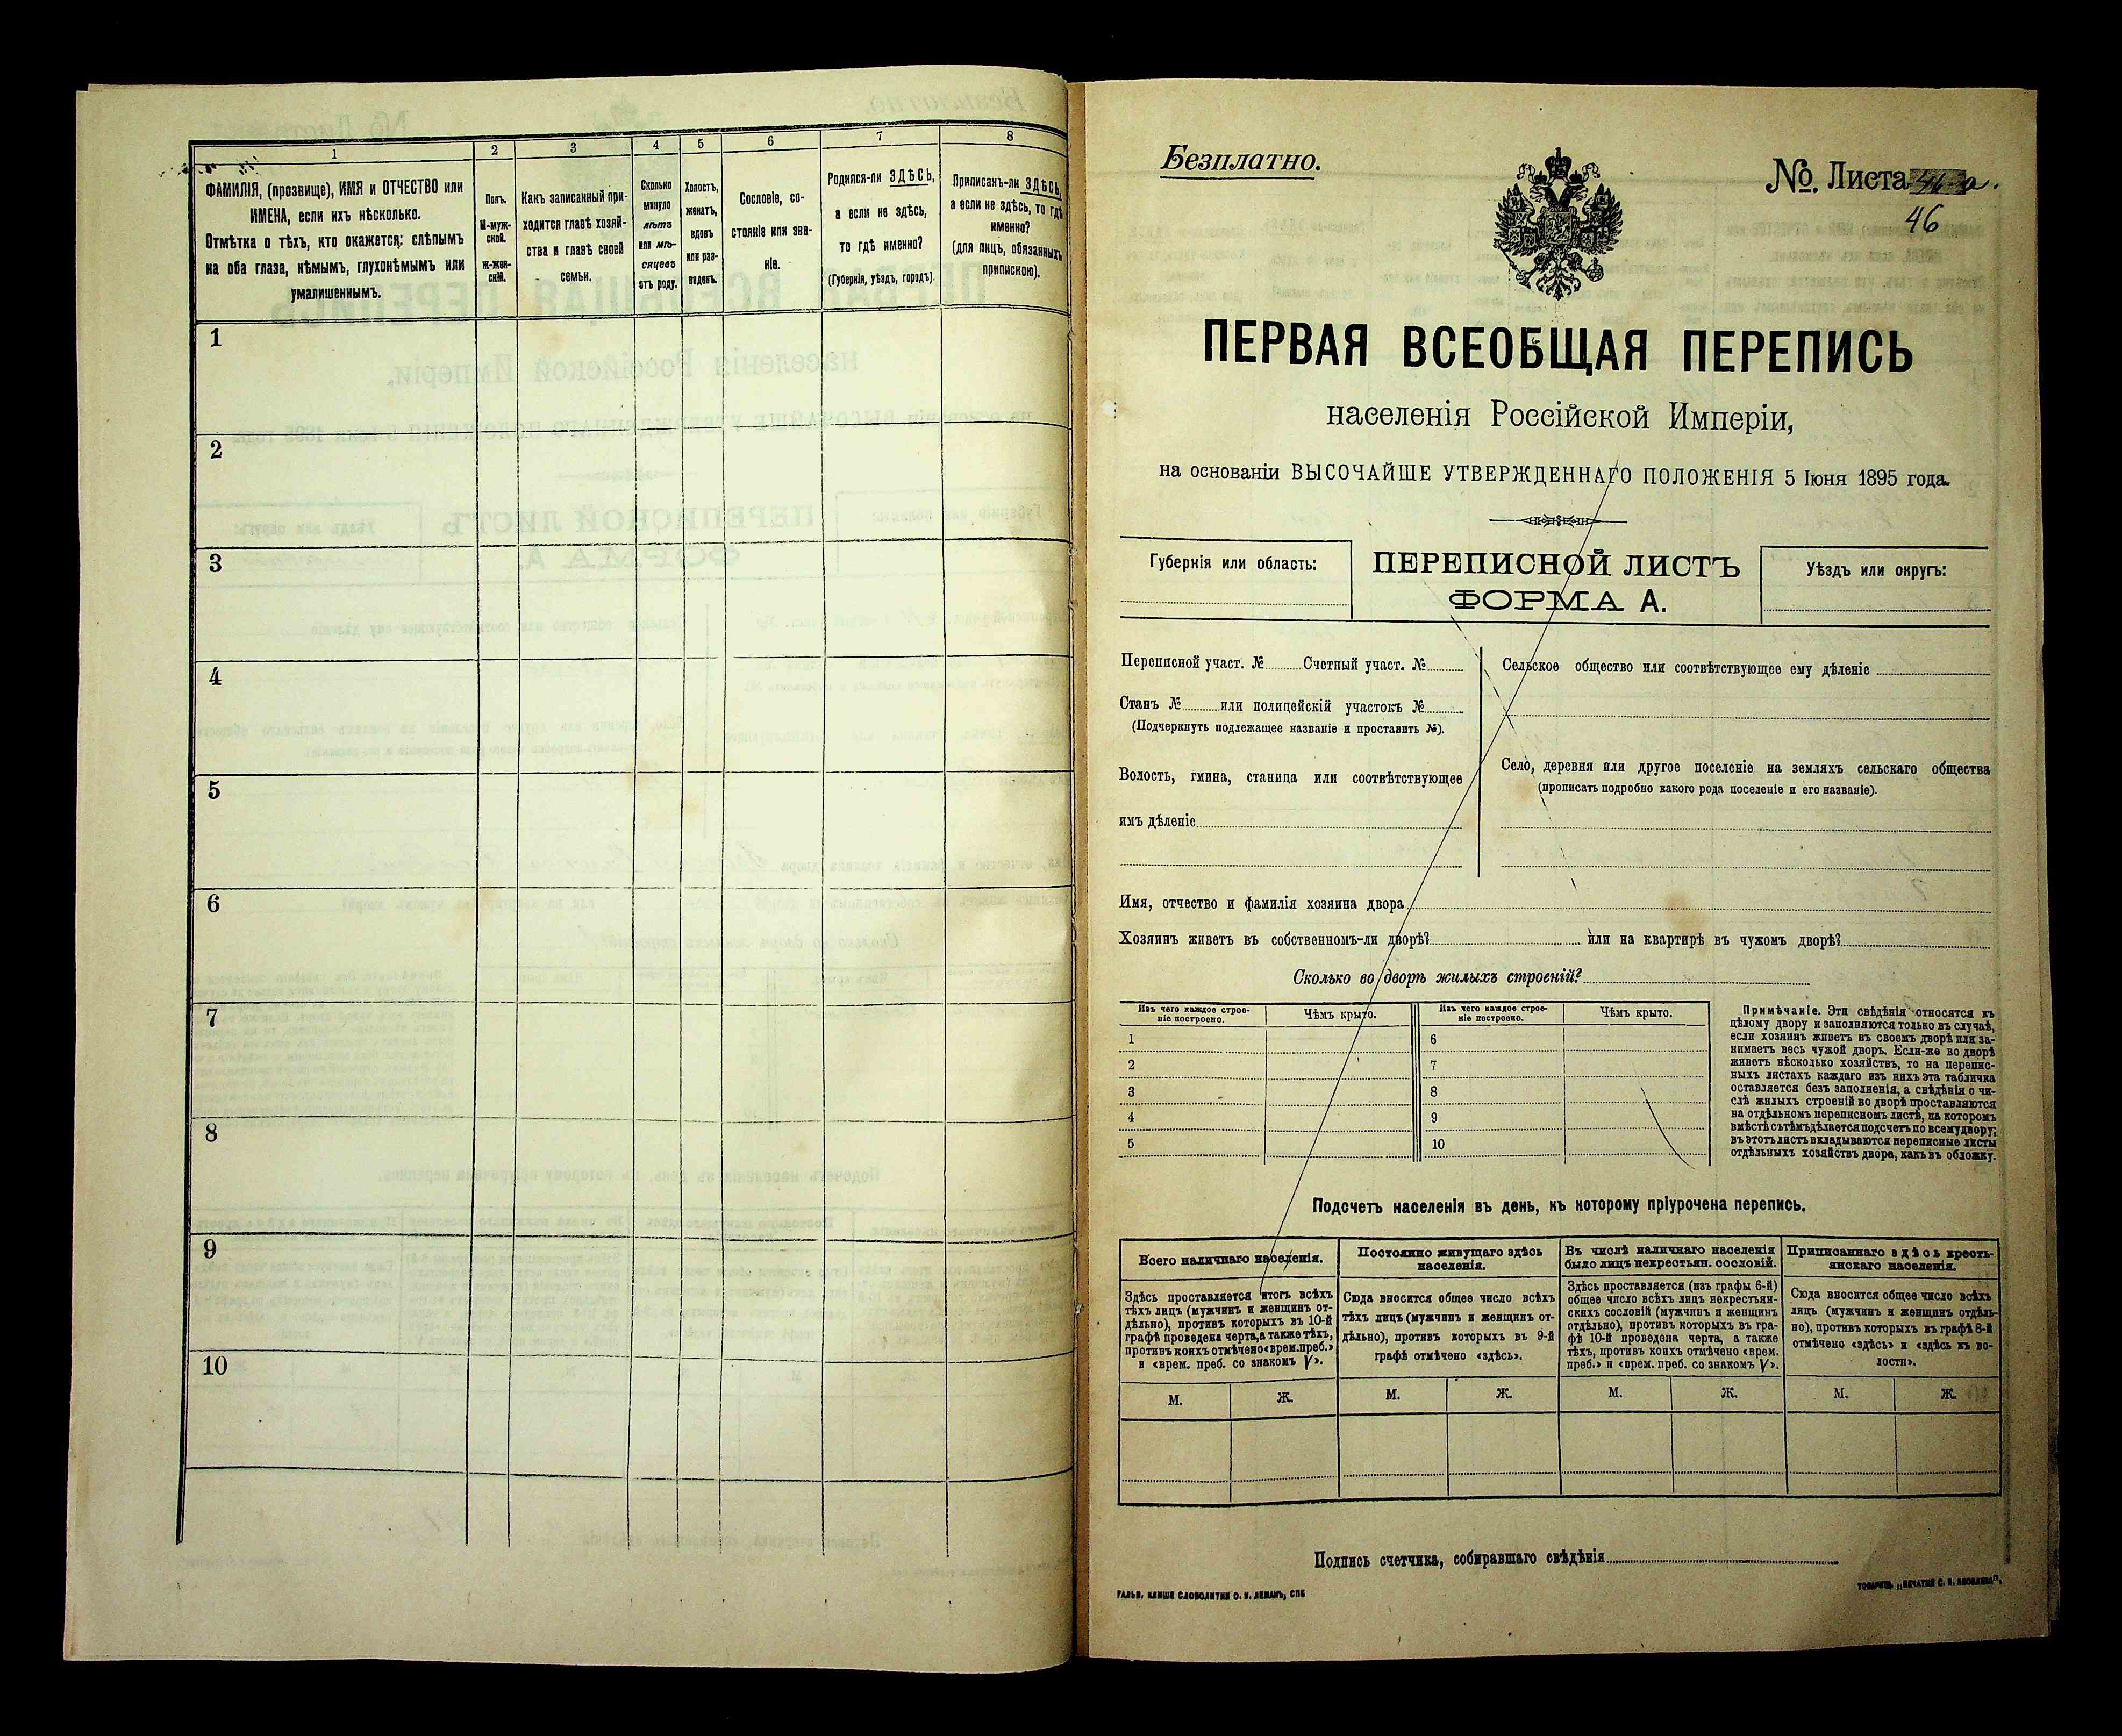 1
2
3
4
5
6
7
8
ФАМИЛІЯ, (прозвище), ИМЯ и ОТЧЕСТВО или
ИМЕНА, если ихъ нѣсколько.
Отмѣтка о тѣхъ, кто окажется: слѣпымъ
на оба глаза, нѣмымъ, глухонѣмымъ или
умалишеннымъ.
Полъ.
М-муж-
ской.
ж-жен-
скій.
Какъ записанный при-
ходится главѣ хозяй-
ства и главѣ своей
семьи.
Сколько
минуло
лѣтъ
или мѣ-
сяцевъ
отъ роду.
Холостъ,
женатъ,
вдовъ
или раз-
веденъ.
Сословіе, со-
стояніе или зва-
ніе.
Родился-ли ЗДѢСЬ,
а если не здѣсь,
то гдѣ именно?
(Губернія, уѣздъ, городъ)
Приписанъ-ли ЗДѢСЬ,
а если не здѣсь, то гдѣ
именно?
(для лицъ, обязанныхъ
припискою).
1
2
3
4
5
6
7
8
9
10
Безплатно.
№. Листа
46
ПЕРВАЯ ВСЕОБЩАЯ ПЕРЕПИСЬ
населенія Россійской Имперіи,
на основаніи ВЫСОЧАЙШЕ УТВЕРЖДЕННАГО ПОЛОЖЕНІЯ 5 Іюня 1895 года.
Губернія или область:
ПЕРЕПИСНОЙ ЛИСТЪ
ФОРМА А.
Уѣздъ или округъ:
Переписной участ. № Счетный участ. №
Станъ № или полицейскій участокъ №
(Подчеркнуть подлежащее названіе и проставить №).
Волость, гмина, станица или соотвѣтствующее
имъ дѣленіе
Сельское общество или соотвѣтствующее ему дѣленіе
Село, деревня или другое поселеніе на земляхъ сельскаго общества
(прописать подробно какого рода поселеніе и его названіе).
Имя, отчество и фамилія хозяина двора
Хозяинъ живетъ въ собственномъ-ли дворѣ? или на квартирѣ въ чужомъ дворѣ?
Сколько во дворѣ жилыхъ строеній?
Изъ чего каждое строе-
ніе построено.
Чѣмъ крыто.
Изъ чего каждое строе-
ніе построено.
Чѣмъ крыто.
1
2
3
4
5
6
7
8
9
10
Примѣчаніе. Эти свѣдѣнія относятся къ
цѣлому двору и заполняются только въ случаѣ,
если хозяинъ живетъ въ своемъ дворѣ или за-
нимаетъ весь чужой дворъ. Если-же во дворѣ
живетъ нѣсколько хозяйствъ, то на перепис-
ныхъ листахъ каждаго изъ нихъ эта табличка
оставляется безъ заполненія, а свѣдѣнія о чи-
слѣ жилыхъ строеній во дворѣ проставляются
на отдѣльномъ переписномъ листѣ, на которомъ
вмѣстѣ съ тѣмъ дѣлается подсчетъ по всему двору;
въ этотъ листъ вкладываются переписные листы
отдѣльныхъ хозяйствъ двора, какъ въ обложку.
Подсчетъ населенія въ день, къ которому пріурочена перепись.
Всего наличнаго населенія.
Здѣсь проставляется итогъ всѣхъ
тѣхъ лицъ (мужчинъ и женщинъ от-
дѣльно), противъ которыхъ въ 10-й
графѣ проведена черта, а также тѣхъ,
противъ коихъ отмѣчено «врем. преб.»
и «врем. преб. со знакомъ V».
Постоянно живущаго здѣсь
населенія.
Сюда вносится общее число всѣхъ
тѣхъ лицъ (мужчинъ и женщинъ от-
дѣльно), противъ которыхъ въ 9-й
графѣ отмѣчено «здѣсь».
Въ числѣ наличнаго населенія
было лицъ некрестьян. сословій.
Здѣсь проставляется (изъ графы 6-й)
общее число всѣхъ лицъ некрестьян-
скихъ сословій (мужчинъ и женщинъ
отдѣльно), противъ которыхъ въ гра-
фѣ 10-й проведена черта, а также
тѣхъ, противъ коихъ отмѣчено «врем.
преб.» и «врем. преб. со знакомъ V».
Приписаннаго здѣсь кресть-
янскаго населенія.
Сюда вносится общее число всѣхъ
лицъ (мужчинъ и женщинъ отдѣль-
но), противъ которыхъ въ графѣ 8-й
отмѣчено «здѣсь» и «здѣсь въ во-
лости».
М. Ж. М. Ж. М. Ж. М. Ж.
Подпись счетчика, собиравшаго свѣдѣнія
ГАЛЬВ. КЛИШЕ СЛОВОЛИТНИ О. И. ЛЕМАНЪ, СПБ
ТОВАРИЩ. „ПЕЧАТНЯ С. П. ЯКОВЛЕВА“.